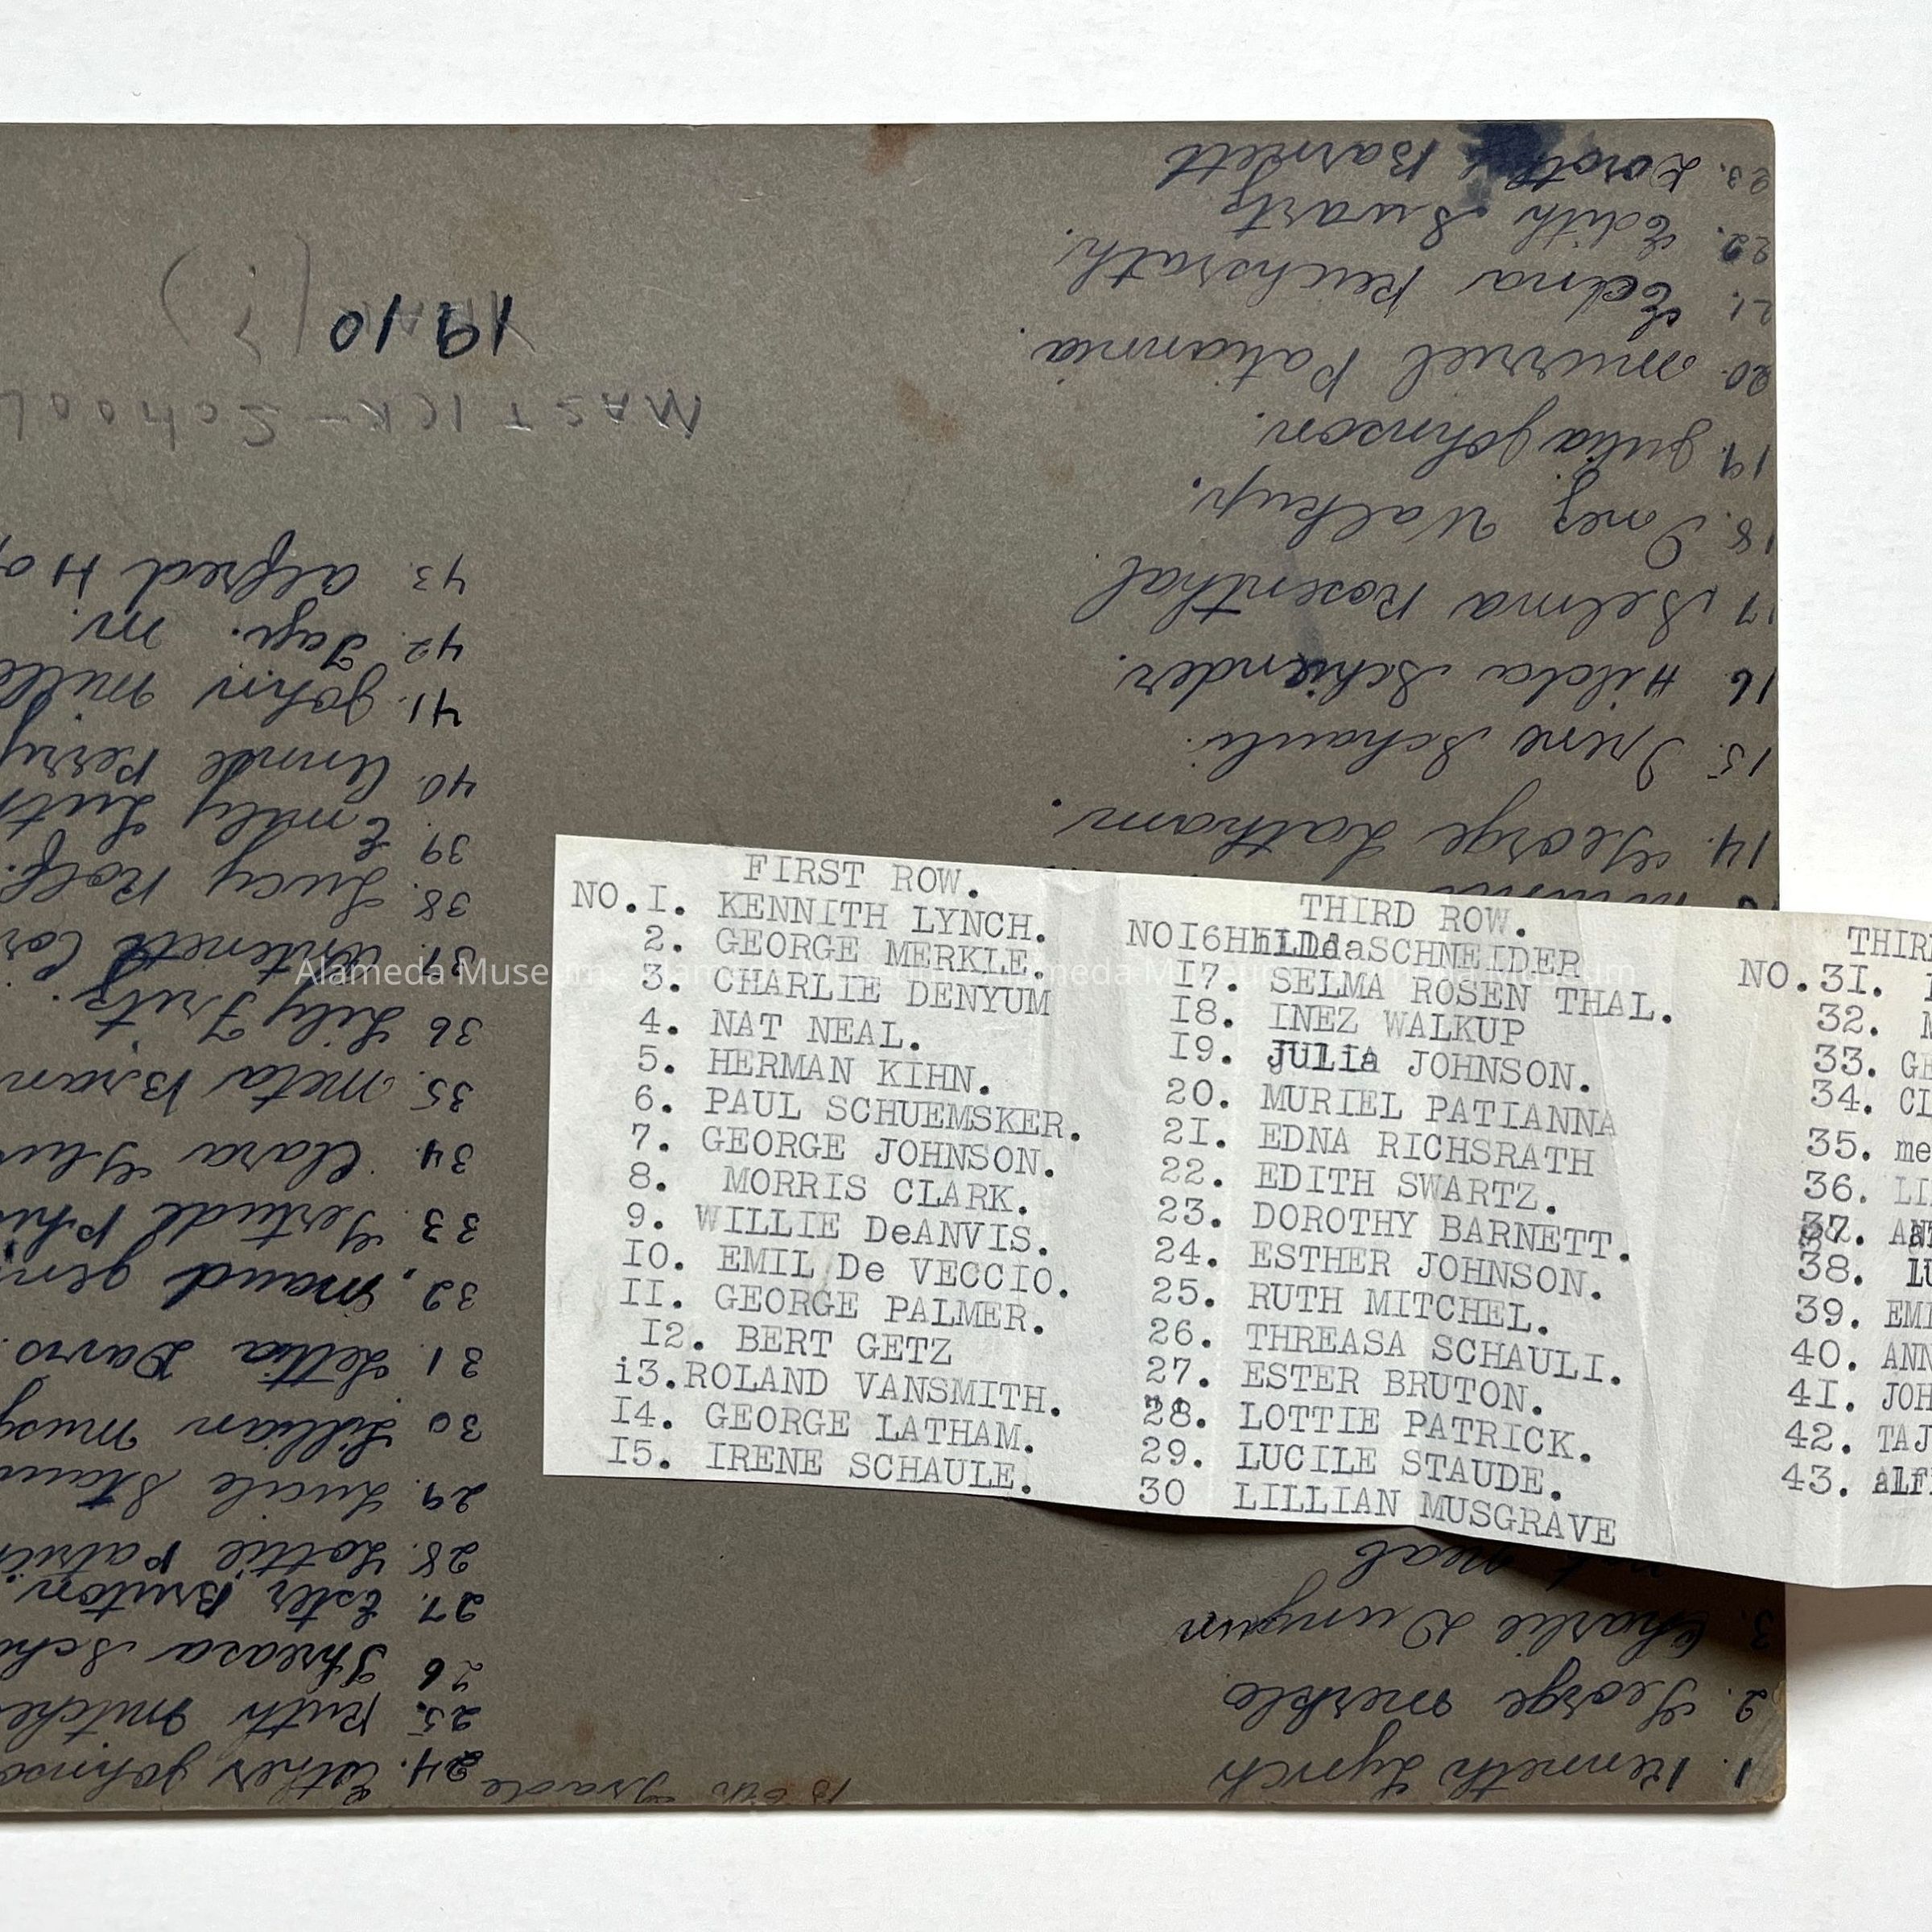 FIRST ROW.
NO.I. KENNITH LYNCH.
2. GEORGE MERKLE.
3. CHARLIE DENYUM
4. NAT NEAL.
5. HERMAN KIHN.
6. PAUL SCHUEMSKER.
7. GEORGE JOHNSON.
8. MORRIS CLARK.
9. WILLIE DeANVIS.
IO. EMIL De VECCIO.
II. GEORGE PALMER.
I2. BERT GETZ
i3.ROLAND VANSMITH.
I4. GEORGE LATHAM.
I5. IRENE SCHAULE.
THIRD ROW.
NOI6 HILDA SCHNEIDER
I7. SELMA ROSEN THAL.
I8. INEZ WALKUP
I9. JULIA JOHNSON.
20. MURIEL PATIANNA
2I. EDNA RICHSRATH
22. EDITH SWARTZ.
23. DOROTHY BARNETT.
24. ESTHER JOHNSON.
25. RUTH MITCHEL.
26. THREASA SCHAULI.
27. ESTER BRUTON.
28. LOTTIE PATRICK.
29. LUCILE STAUDE.
30 LILLIAN MUSGRAVE
THIR
NO.3I.
32.
33. GE
34. CL
35. me
36. LI
37.
38. LU
39. EMI
40. ANN
4I. JOH
42. TAJ
43. aLF
1. Kenneth Lynch
2. George Merkle
3. Charlie Dunyun
Neal
14. George Latham.
15. Irene Schauli.
16 Hilda Schiender.
17. Selma Rosenthal
18. Inez Walkup.
19. Julia Johnson.
20. Murriel Patianna.
21. Edna Richsrath.
22. Edith Swartz
23. Doroth Barnett
B 6th Grade
24. Esther Johnso
25. Ruth Mitche
26 Threasa Sch
27. Ester Bruton.
28. Lottie Patri
29. Lucile Stau
30 Lillian Musg
31. Lettia Davis.
32. Maud
33. Gertrude
34. Clara
35. Meta
36 Lily Fritz.
37.
38. Lucy Rolf.
39. Emily
40. Annie Perry
41. John Mille
42. Taju. M.
43. Alfred Ho
MASTICK-SCHOOL
1910
(?)
Alameda Museum